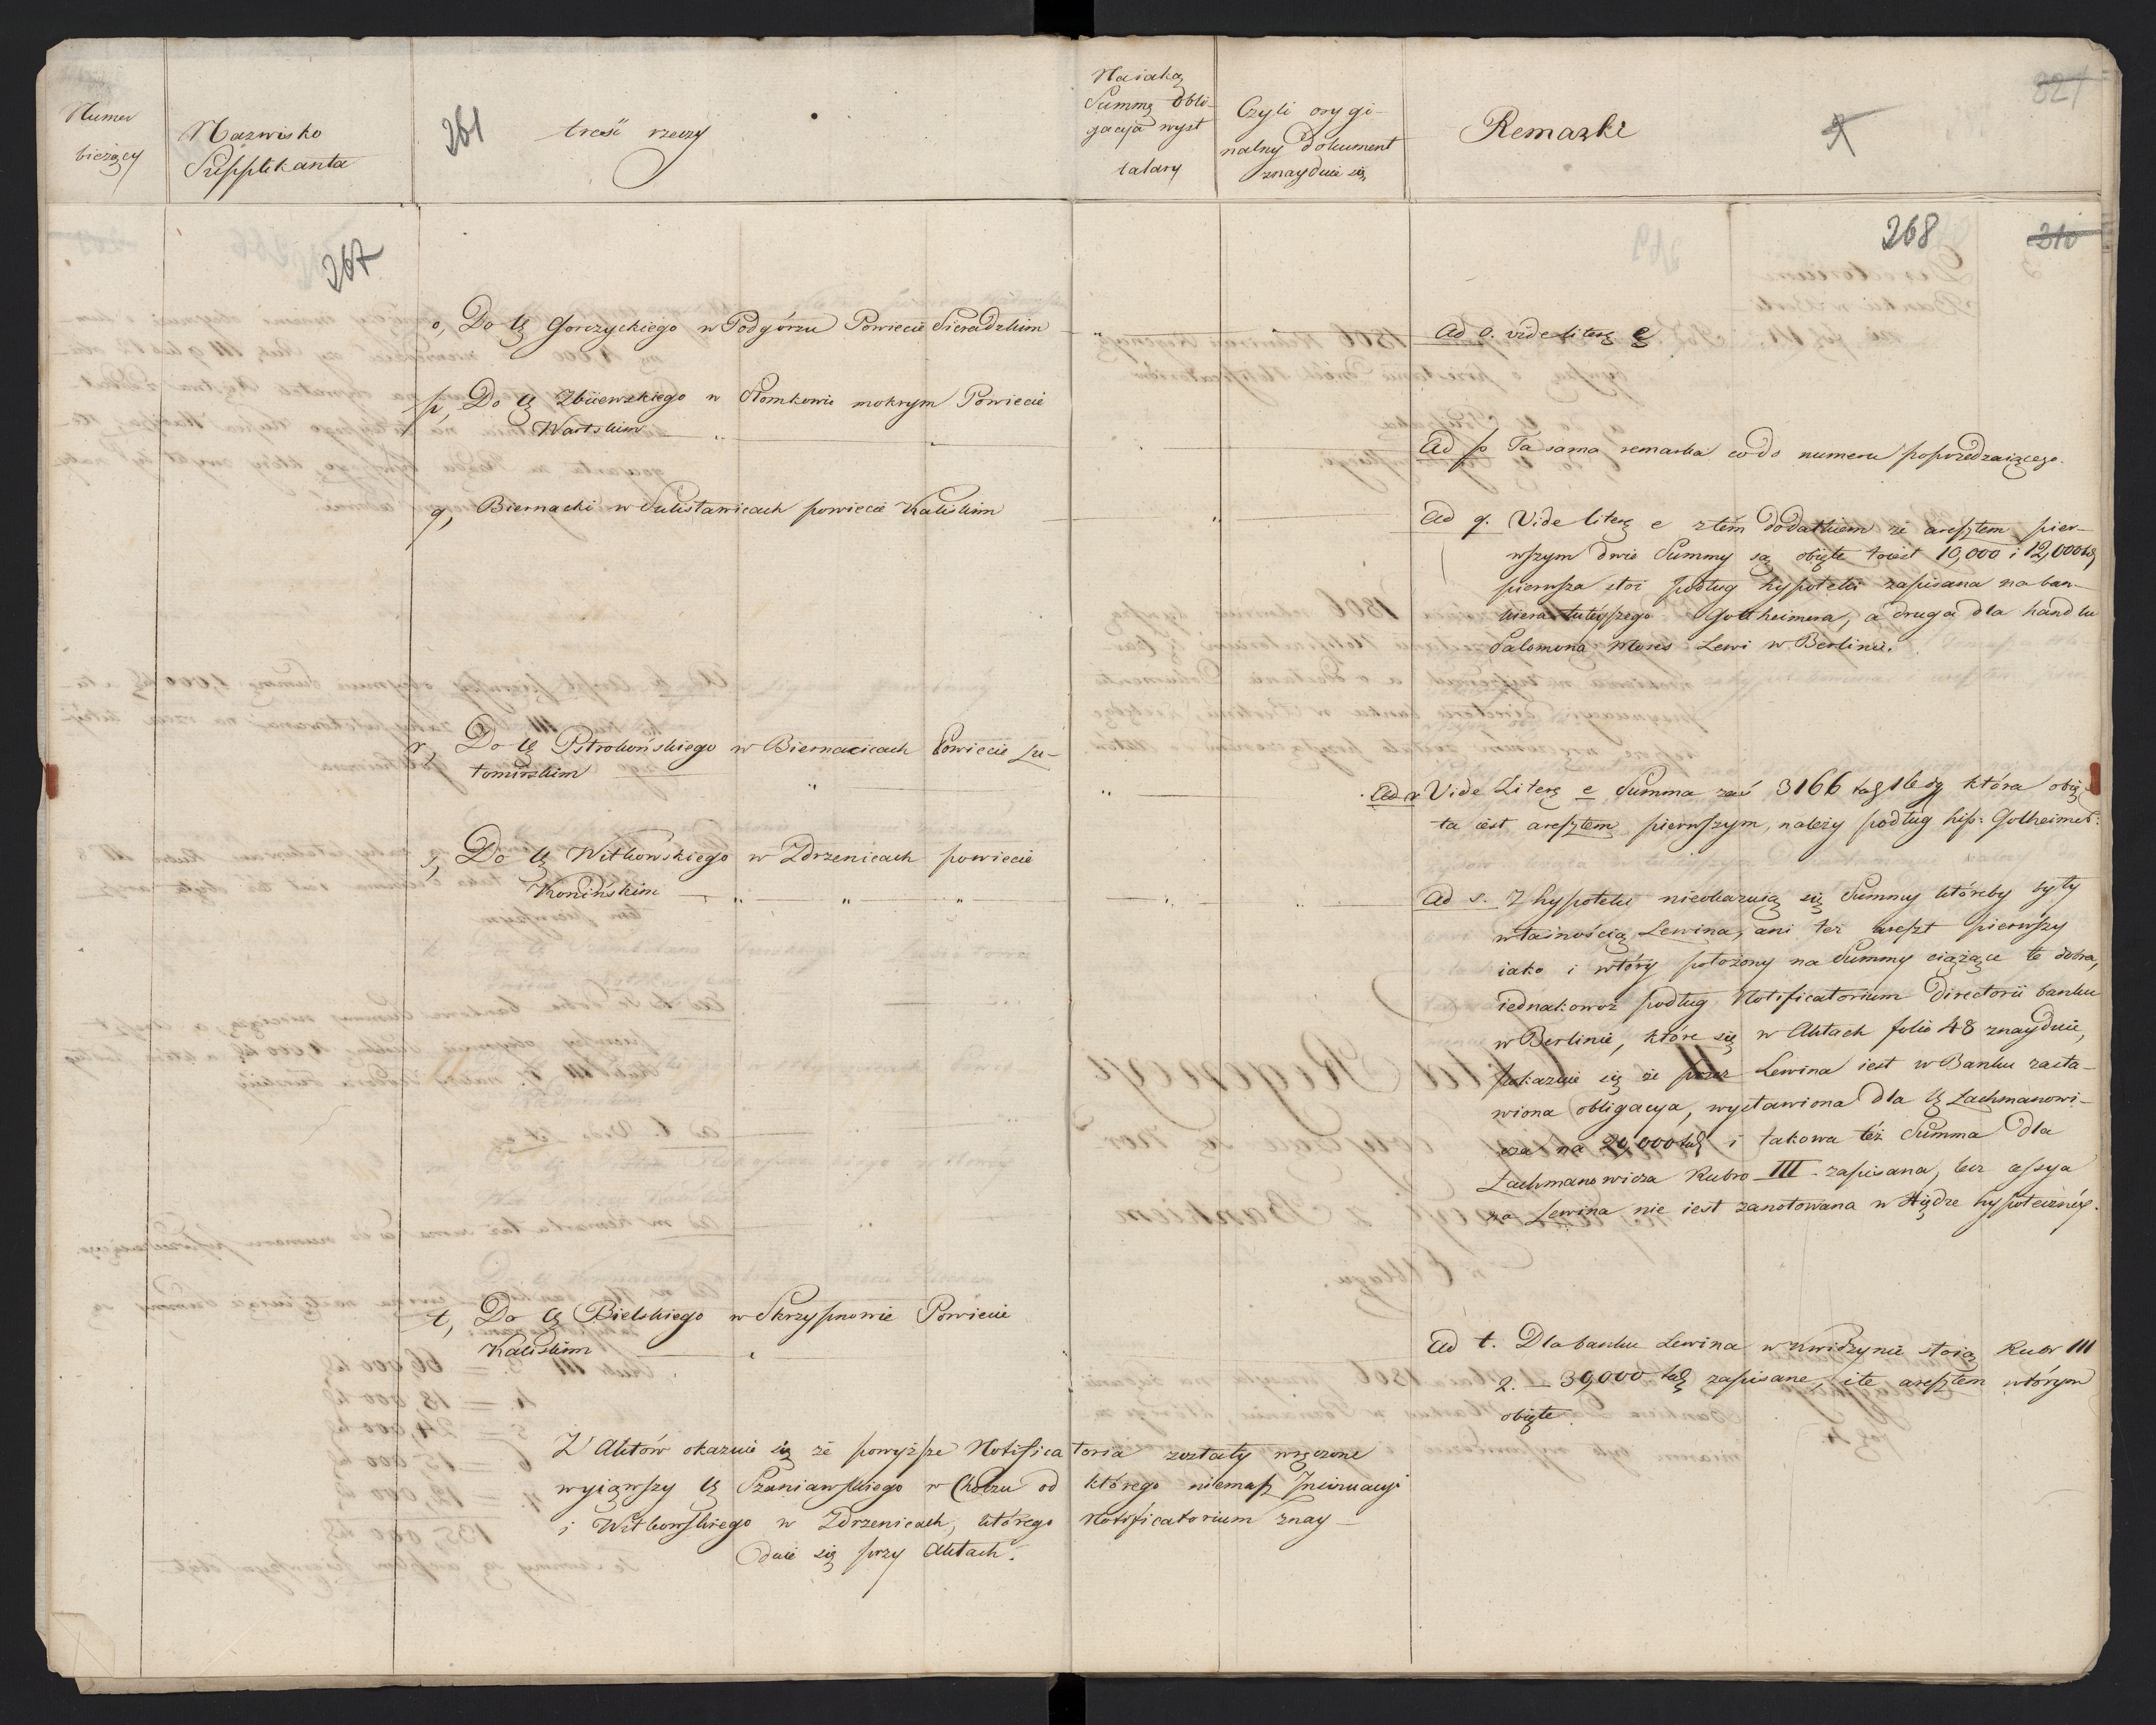 Numer
bieżący
Nazwisko
Supplikanta
261
treść rzeczy
Na iaką
Summę obli-
gacyia wyst
talary
Czyli orygi-
nalny dokument
znayduie się
Remarki
321
267
268
210
o, Do Ur Gorczyckiego w Podgórzu Powiecie Sieradzkim
Ad o. vide literę e
p, Do Ur Zbiiewskiego w Słomkowie mokrym Powiecie
Wartskim
Ad p Ta sama remarka co do numeru poprzedzaiącego.
q, Biernacki w Sulisławicach powiecie Kaliskim
Ad q. Vide literę e z tém dodatkiem że aresztem pier-
wszym dwie Summy są obięte to iest 10,000 i 12,000 tal
pierwsza stoi podług hypoteki zapisana na ban-
kiera tuteyszego Gottheimera, a druga dla handlu
Salomona Moses Lewi w Berlinie.
r, Do Ur Pstrokońskiego w Biernacicach Powiecie Lu-
tomirskim
Ad r Vide Literę e Summa zaś 3166 tal 16 dg która obię
ta iest aresztem pierwszym, należy podług hip: Gotheimer:
s, Do Ur Witkowskiego w Zdrzenicach powiecie
Konińskim
Ad s. Z hypoteki nieokazuią się Summy któreby były
własnością Lewina, ani też areszt pierwszy
iako i wtóry położony na Summy ciążące te dobra,
iednakowoż podług Notificatorium Directorii banku
w Berlinie, które się w Aktach folio 48 znayduie,
pokazuie się że przez Lewina iest w Banku zasta-
wiona obligacya, wystawiona dla Ur Lachmanowi-
cza na 20,000 tal i takowa też Summa dla
Lachmanowicza Rubro III. zapisana, lecz cessya
na Lewina nie iest zanotowana w Xiędze hypoteczney.
t, Do Ur Bielskiego w Skrzypnowie Powiecie
Kaliskim
Ad t. Dla banku Lewina w Kwidzynie stoią Rubr III
2. — 30,000 tal zapisane, i te aresztem wtórym
obięte
Z Aktów okazuie się że powyższe Notificatoria zostały wręczone
wyiąwszy Ur Szaniawskiego w Choczu od którego niemasz Insinuacyi
i Witkowskiego w Zdrzenicach, którego Notificatorium znay-
duie się przy Aktach.